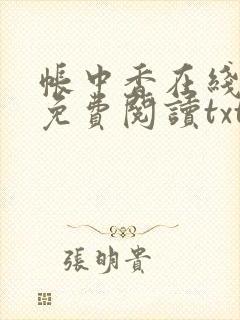 帳中香在綫
免費閱讀txt
張明貴